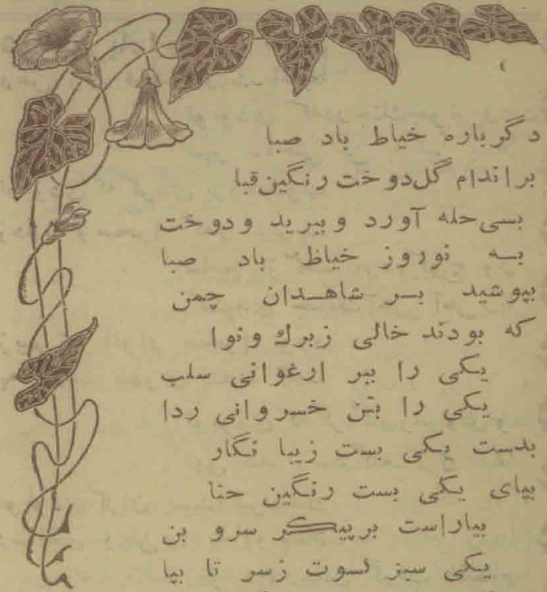 دگرباره خیاط باد صبا
براندام گل دوخت رنگین قبا
بسی حله آورد و ببرید و دوخت
به نوروز خیاظ باد صبا
بپوشید بر شاهدان چمن
که بودند خالی زبرك و نوا
یکی را ببر ارغوانی سلب
یکی را بتن خسروانی ردا
بدست یکی بست زیبا نگار
بپای یکی بست رنگین حنا
بیاراست برپیکر سرو بن
یکی سبز کسوت زسر تا بپا